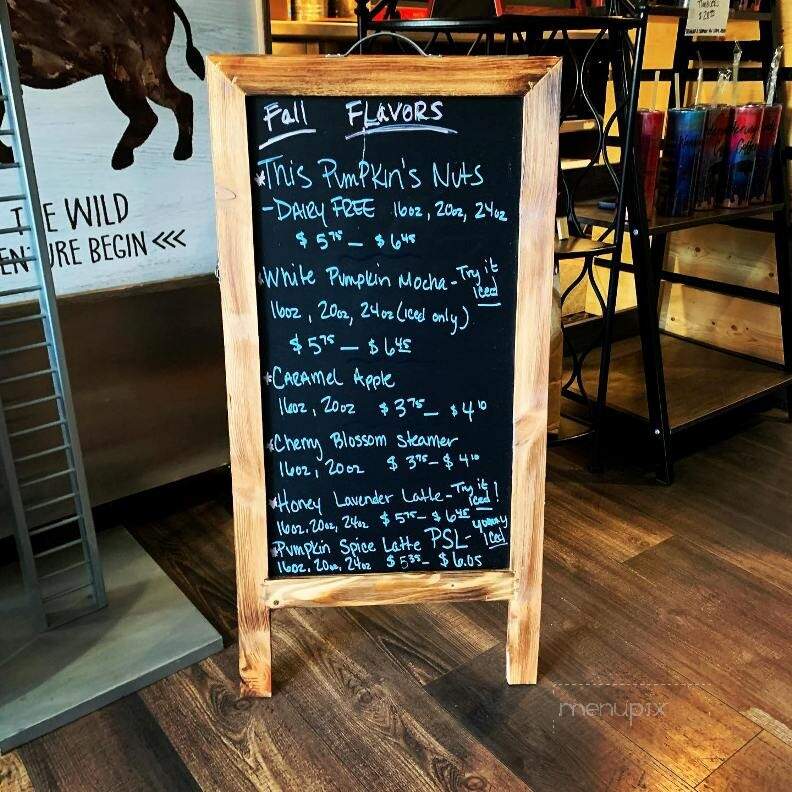 Fall FLAVORS
*This Pumpkin's Nuts
- DAIRY FREE 16oz, 20oz, 24oz
$5.75 — $6.45
*White Pumpkin Mocha - Try it Iced
16oz, 20oz, 24oz (iced only)
$5.75 — $6.45
*CARAMEL Apple
16oz, 20oz $3.75 — $4.10
*Cherry Blossom Steamer
16oz, 20oz $3.75 — $4.10
*Honey Lavender Latte - Try it Iced!
16oz, 20oz, 24oz $5.75 — $6.45
*Pumpkin Spice Latte PSL - yummy Iced
16oz, 20oz, 24oz $5.35 — $6.05
THE WILD
URE BEGIN <<<
menupix